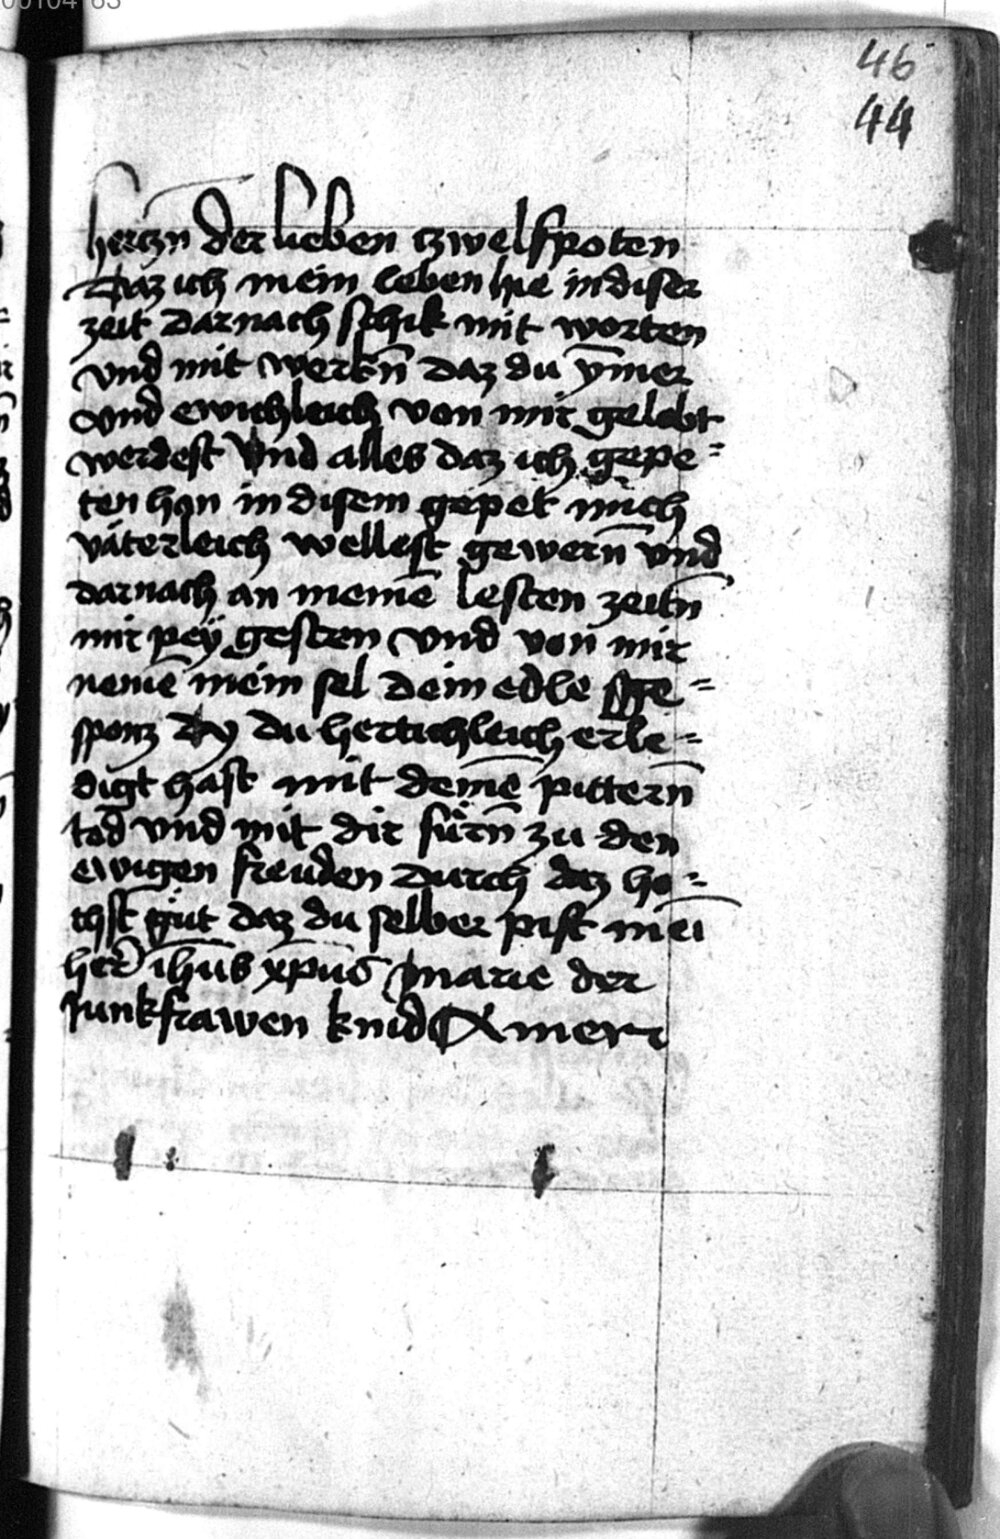 46
44
hertzn̄ der lieben tzwelfpoten
Daz ich mein leben hie in diser
zeit darnach schik mit worten
vnd mit werkn̄ daz du ӯmer
vnd ewichleich von mir gelobt
werdest Vnd alles daz ich gepe=
ten hon in disem gepet mich
väterleich wellest gewern̄ vnd
darnach an meinē lesten zeitn̄
mir pey gesten vnd von mir
nemē mein sel dein edle ge=
sponz dy du hertichleich erle=
digt hast mit deinē pittern̄
tod vnd mit dir fürn̄ zu den
ewigen freuden durch daz ho=
chst güt daz du selber pist mei̅
her̄ ih̄us xp̄us marie der
Junkfrawen kind Amen